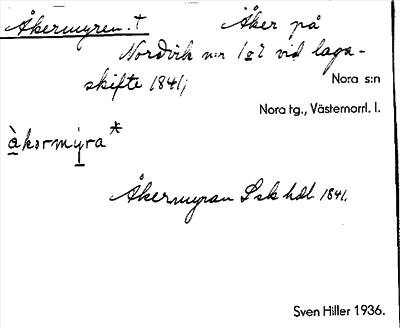 Åkermyren. † Åker på
Nordvik n:r 1 o 2 vid laga-
skifte 1841;
Nora s:n
Nora tg., Västernorrl. l.
àkərmýra*
Åkermyran Lsk hdl 1841.
Sven Hiller 1936.